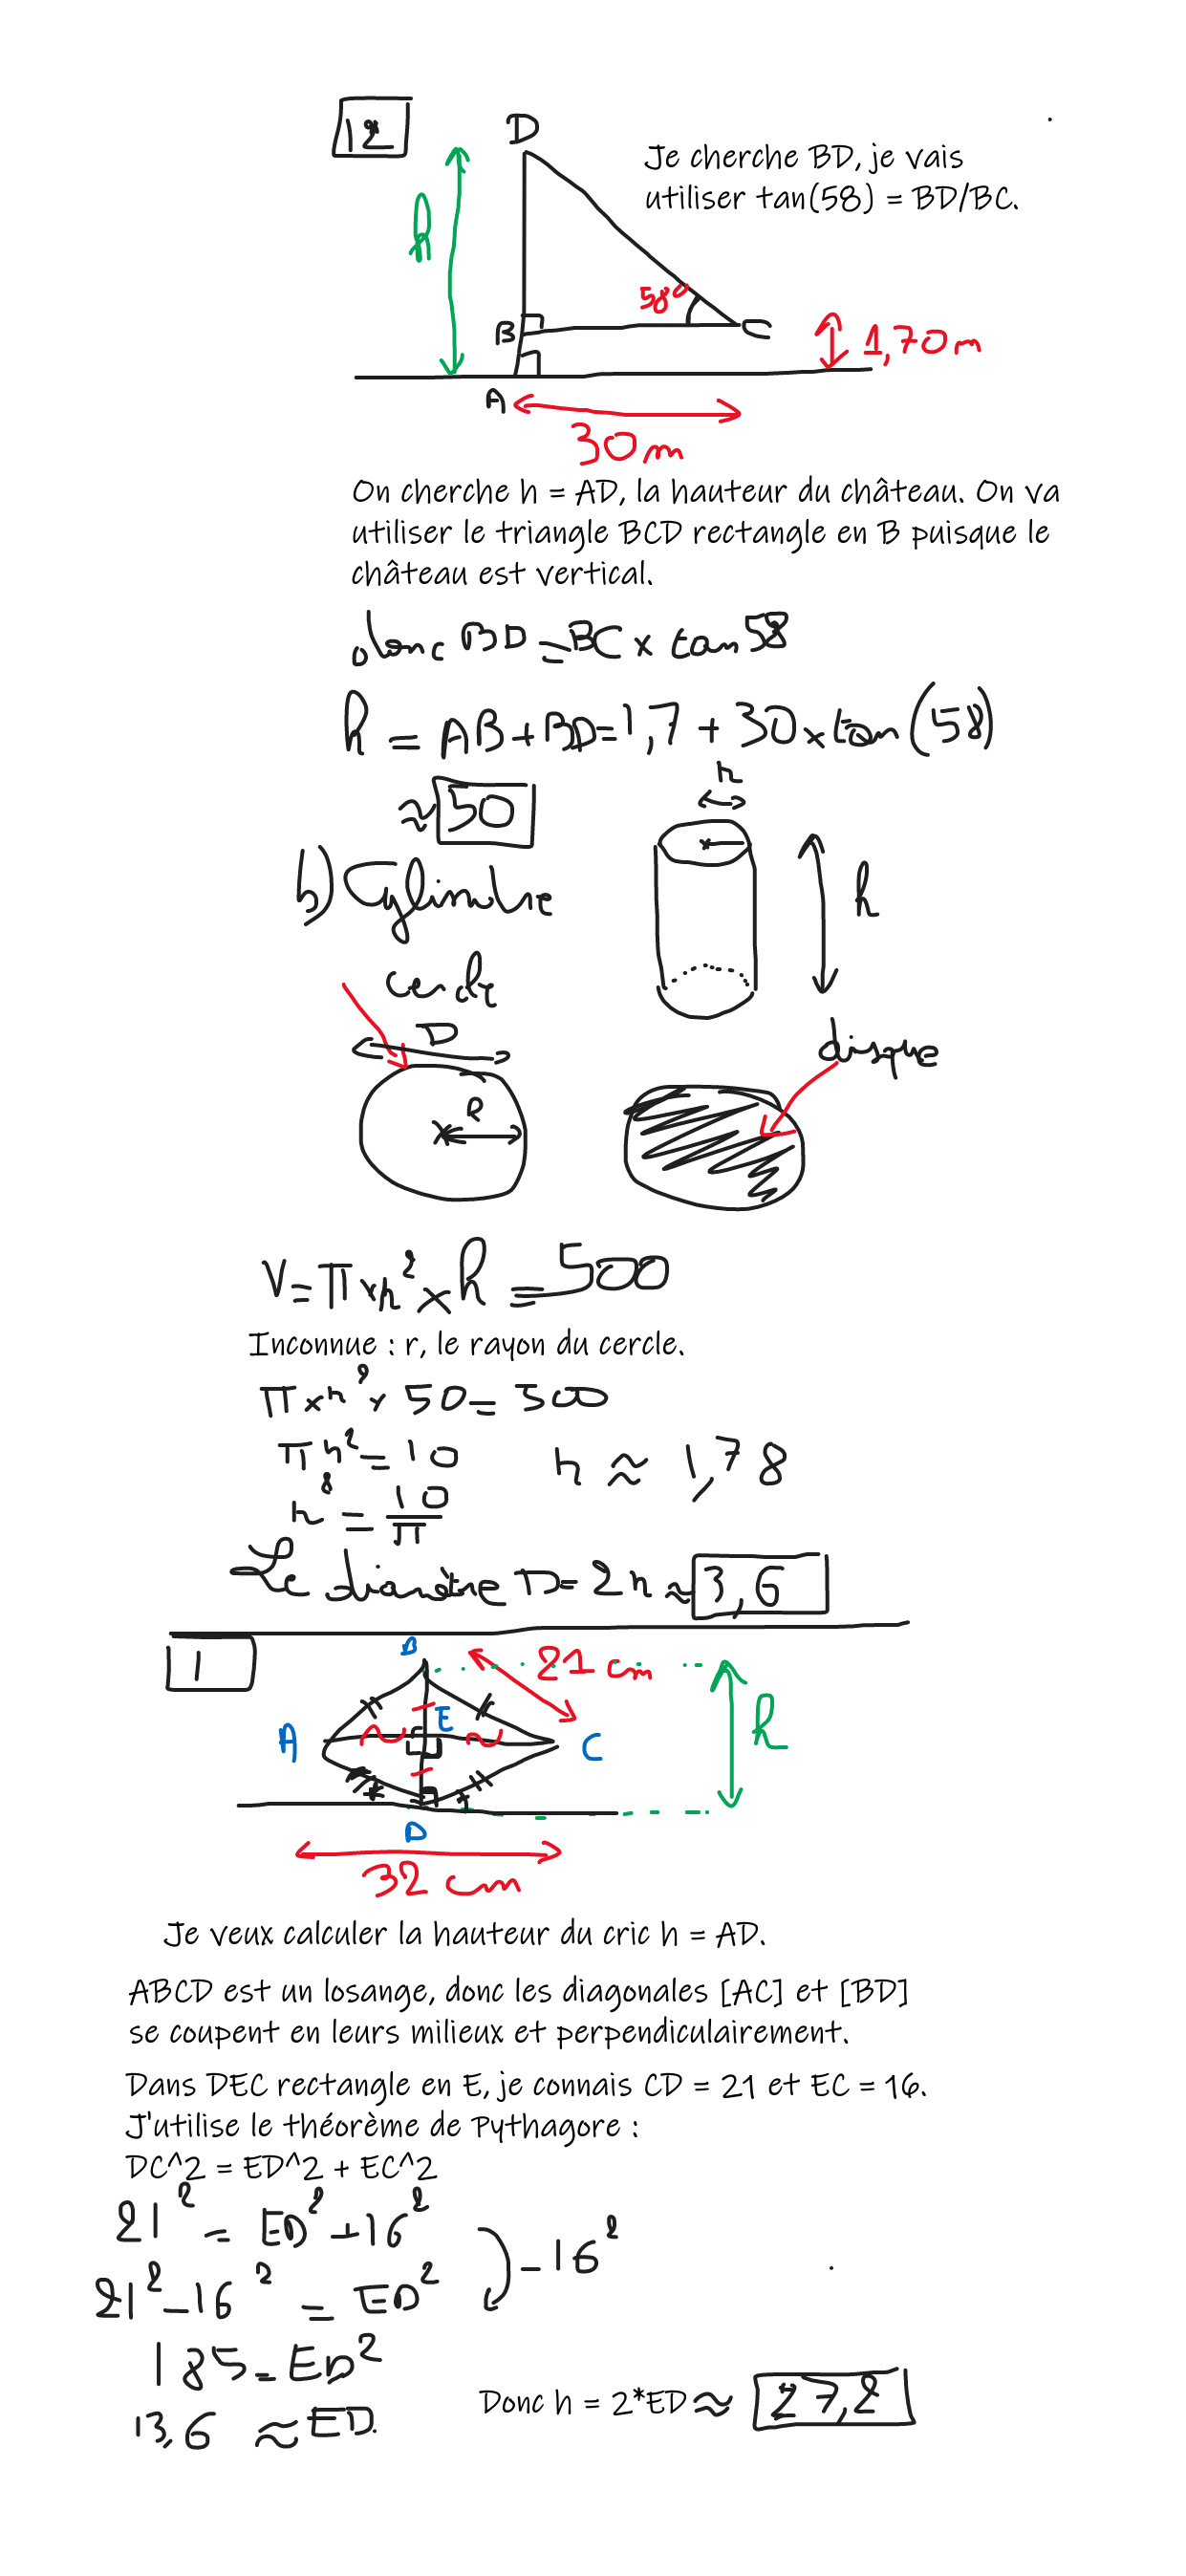 12
D
Je cherche BD, je vais
utiliser tan(58) = BD/BC.
h
58°
B
C
1,70m
A
30m
On cherche h = AD, la hauteur du château. On va
utiliser le triangle BCD rectangle en B puisque le
château est vertical.
donc BD = BC x tan 58
h = AB + BD = 1,7 + 30 x tan (58)
≈ 50
r
b) Cylindre
h
cercle
D
disque
R
V = π x r² x h = 500
Inconnue : r, le rayon du cercle.
π x r² x 50 = 500
π r² = 10
r ≈ 1,78
r² = 10/π
Le diamètre D = 2r ≈ 3,6
1
B
21 cm
E
h
A
C
D
32 cm
Je veux calculer la hauteur du cric h = AD.
ABCD est un losange, donc les diagonales [AC] et [BD]
se coupent en leurs milieux et perpendiculairement.
Dans DEC rectangle en E, je connais CD = 21 et EC = 16.
J'utilise le théorème de Pythagore :
DC^2 = ED^2 + EC^2
21² = ED² + 16²
- 16²
21² - 16² = ED²
185 = ED²
13,6 ≈ ED.
Donc h = 2*ED ≈ 27,2